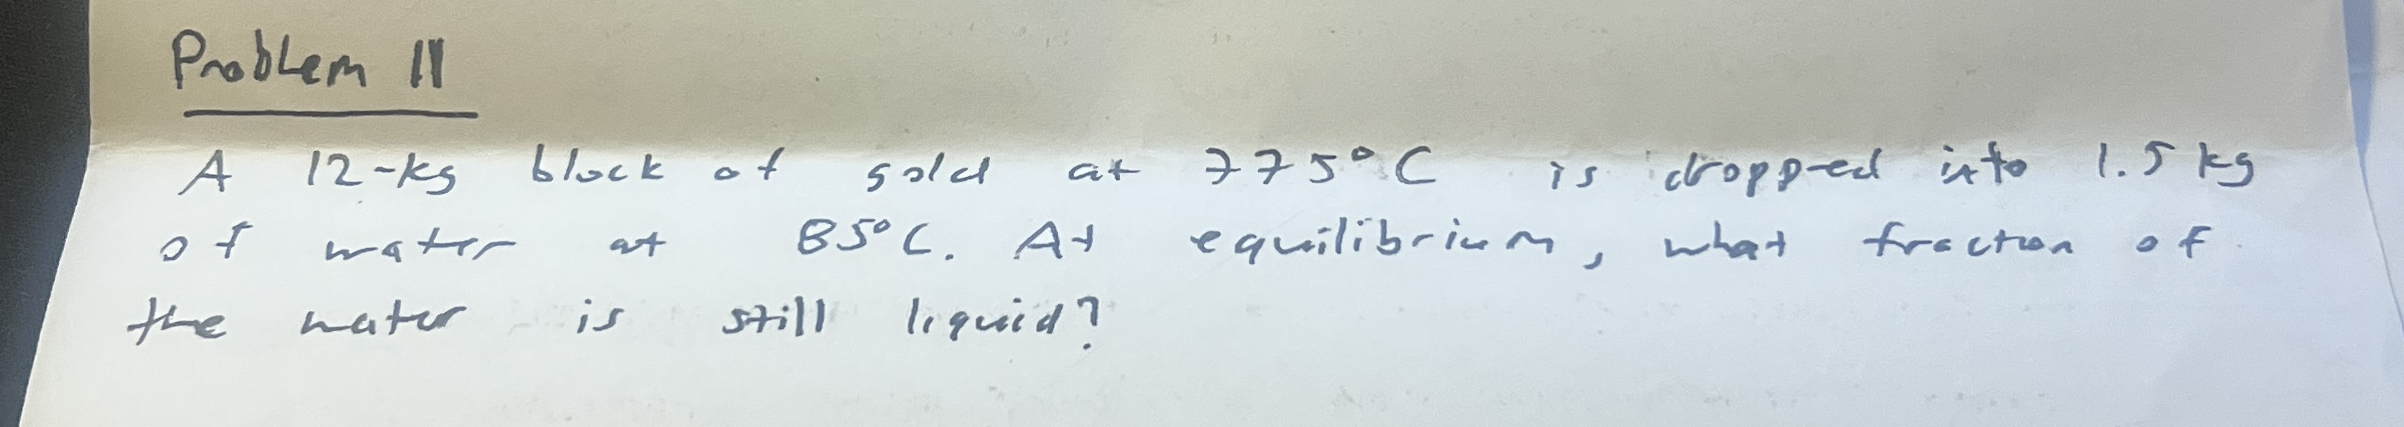 Problem 11
A 12-kg block of gold at 775°C is dropped into 1.5 kg
of water at 85°C. At equilibrium, what fraction of
the water is still liquid?